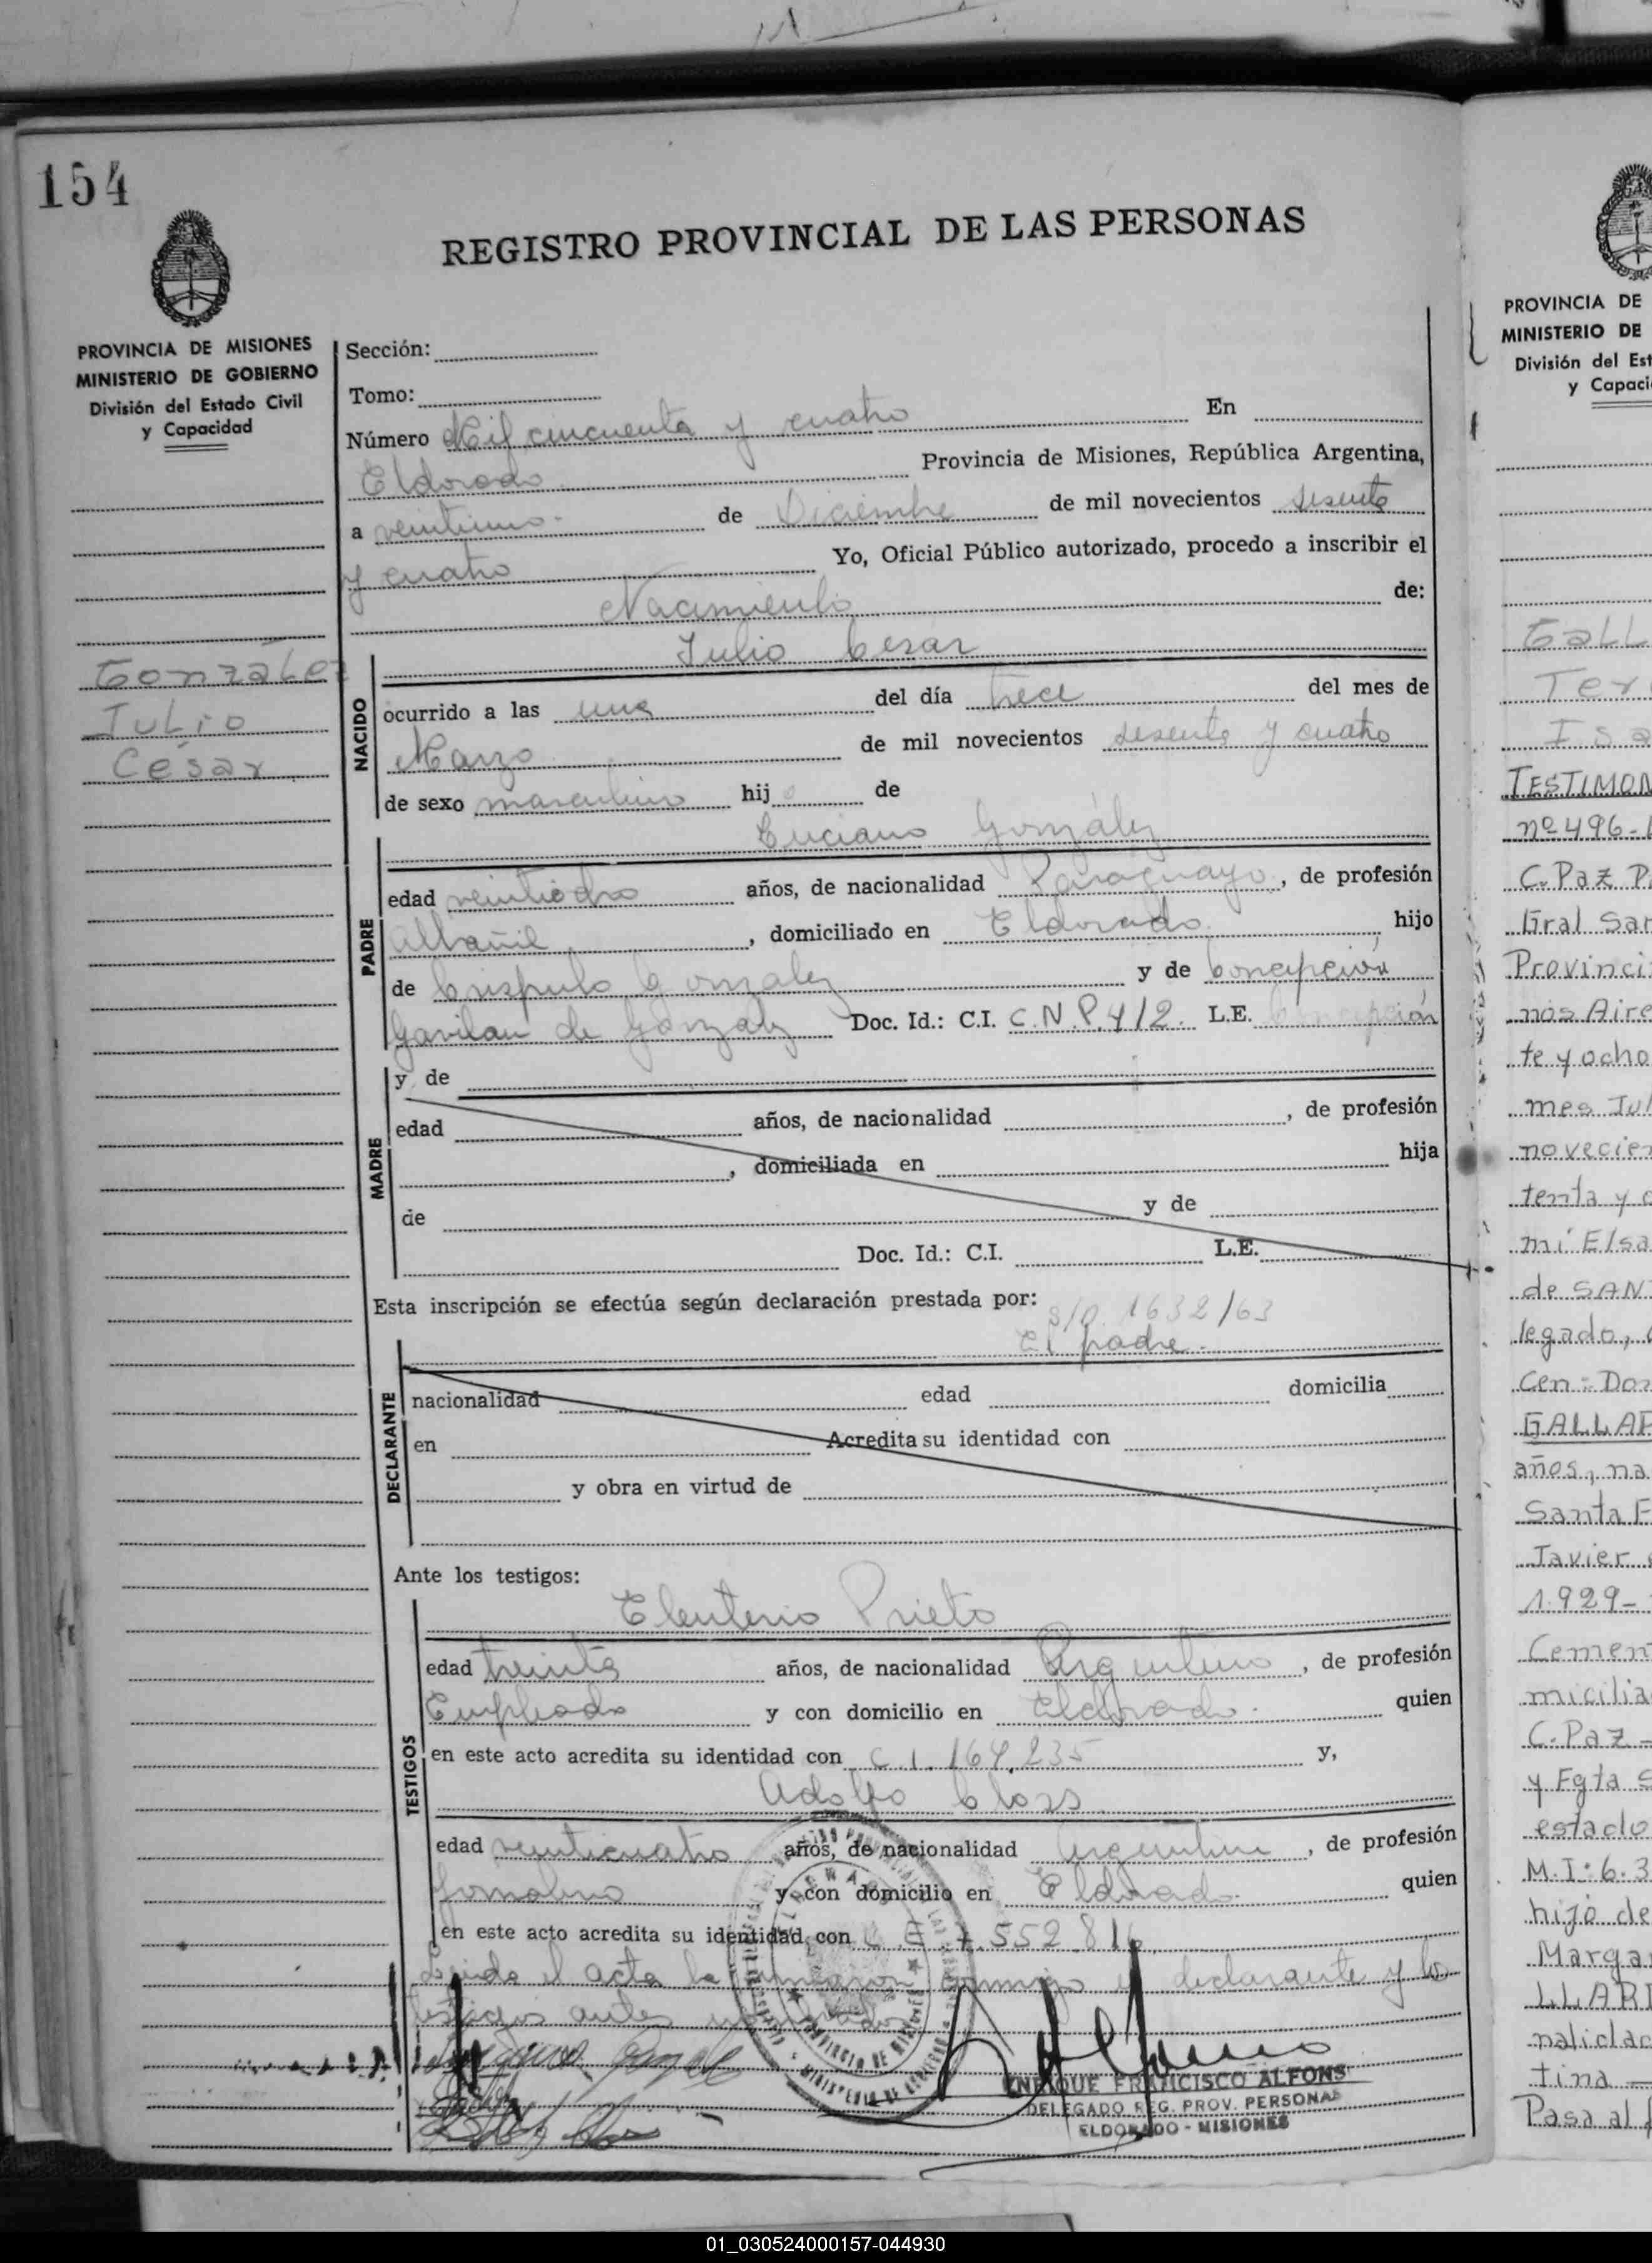 154
REGISTRO PROVINCIAL DE LAS PERSONAS
PROVINCIA DE MISIONES
MINISTERIO DE GOBIERNO
División del Estado Civil
y Capacidad
González
Julio
César
Sección:
Tomo:
Número Mil cincuenta y cuatro En
Eldorado Provincia de Misiones, República Argentina,
a veintiuno de Diciembre de mil novecientos sesenta
y cuatro Yo, Oficial Público autorizado, procedo a inscribir el
Nacimiento de:
Julio Cesar
NACIDO
ocurrido a las una del día trece del mes de
Marzo de mil novecientos sesenta y cuatro
de sexo masculino hijo de
Luciano González
PADRE
edad años, de nacionalidad Paraguayo, de profesión
Albañil, domiciliado en Eldorado hijo
de Crispulo Gonzalez y de Concepción
Gavilan de González Doc. Id.: C.I. C.N.P. 412. L.E.
MADRE
y de
edad años, de nacionalidad , de profesión
, domiciliada en hija
de y de
Doc. Id.: C.I. L.E.
Esta inscripción se efectúa según declaración prestada por: 1632/63
El padre.
DECLARANTE
nacionalidad edad domicilia
en Acredita su identidad con
y obra en virtud de
Ante los testigos:
Eleuterio Prieto
TESTIGOS
edad treinta años, de nacionalidad Argentino, de profesión
Empleado y con domicilio en Eldorado. quien
en este acto acredita su identidad con C.I. 164.235 y,
Adolfo Closs
edad veinticuatro años, de nacionalidad Argentino, de profesión
Jornalero y con domicilio en Eldorado. quien
en este acto acredita su identidad con L.E. 7.552.816
Leida el acta la firmaron conmigo el declarante y los
testigos antes
ENRIQUE FRANCISCO ALFONS
DELEGADO REG. PROV. PERSONAS
ELDORADO - MISIONES
PROVINCIA DE
MINISTERIO DE
División del Est
y Capaci
GALL
Ter
Isa
TESTIMON
nº 496-
C. Paz P
Gral San
Provinci
nos Aire
te y ocho
mes Jul
novecien
tenta y o
mi Elsa
de SAN
legado,
Cen- Don
GALLAR
años, na
Santa F
Javier
1.929-
Cement
micilia
C. Paz
y Fgta S
estado
M.I: 6.3
hijo de
Margar
LLARD
nalidad
tina
Pasa al
01_030524000157-044930